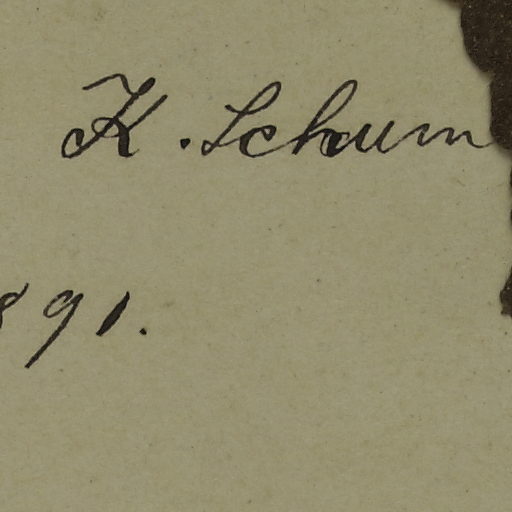 K. Schum
891.